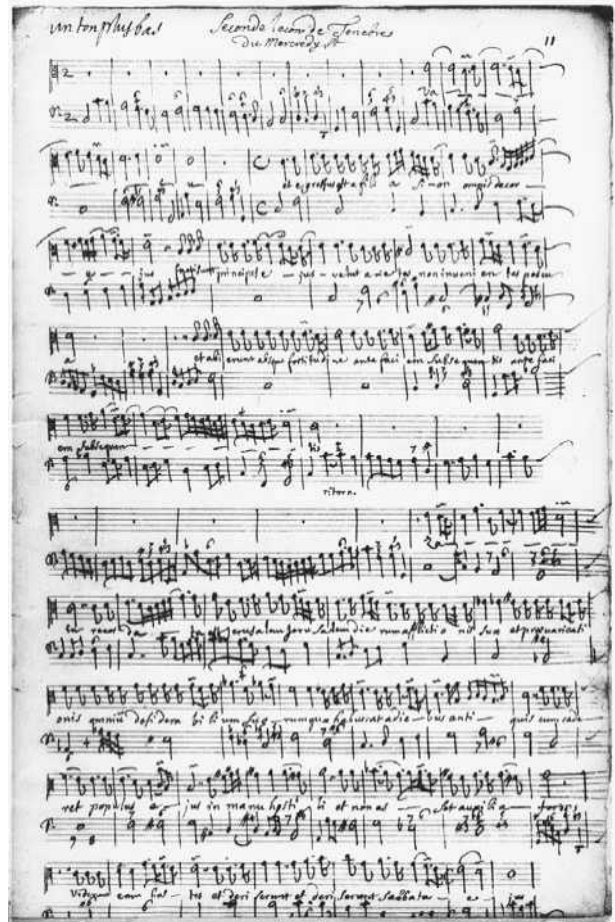 un ton plus bas
Seconde leçon de Tenebres
Du Mercredy
11
Va
u et egressus est a filia Si - mon omnis decor
e - jus facti sunt principes e - jus velut a rie tes non inveni en tes pascu
a et abi erunt absque fortitudi ne ante faci em subsequen tis ante faci
em subsequen tis
ritorn.
Za
in recor da ta est Jerusalem die rum afflictio nis suæ et prævaricati
onis omniū desidera bi li um suo - rum quæ habuerat a die - bus anti - quis cum cade
ret populus e - jus in manu hosti - li et non es - set auxilia - tor
Viderunt eam hos - tes et deri serunt et deri serunt sabbata e